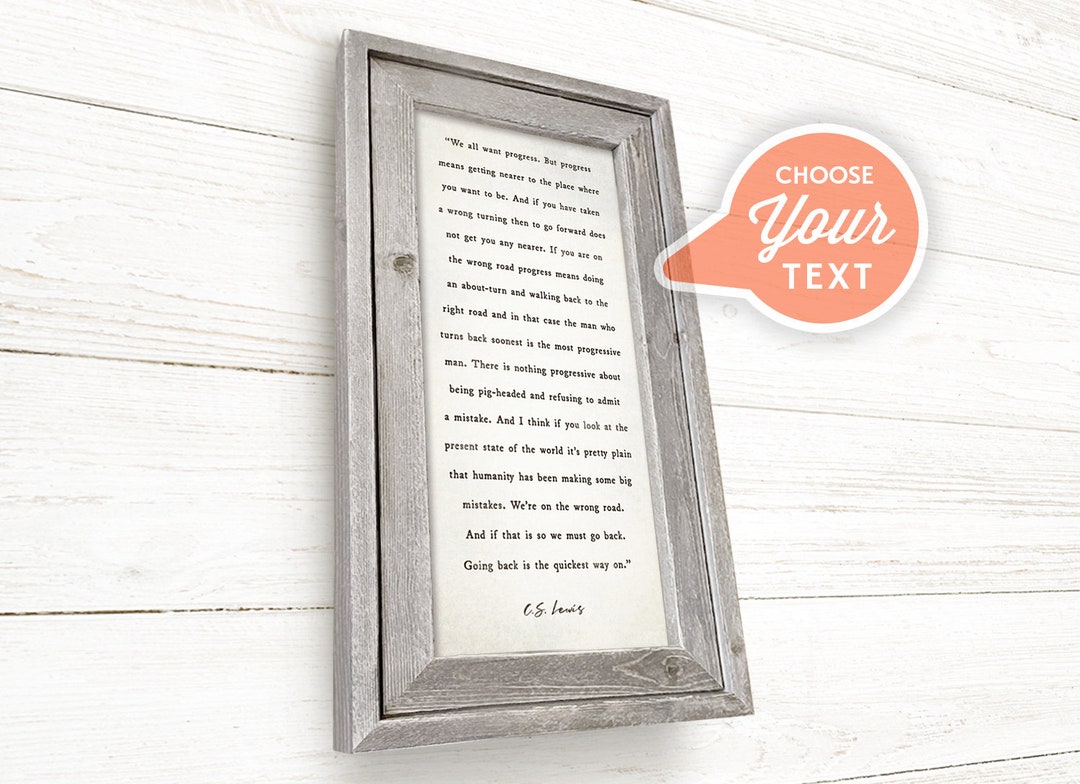 “We all want progress. But progress
means getting nearer to the place where
you want to be. And if you have taken
a wrong turning then to go forward does
not get you any nearer. If you are on
the wrong road progress means doing
an about-turn and walking back to the
right road and in that case the man who
turns back soonest is the most progressive
man. There is nothing progressive about
being pig-headed and refusing to admit
a mistake. And I think if you look at the
present state of the world it’s pretty plain
that humanity has been making some big
mistakes. We’re on the wrong road.
And if that is so we must go back.
Going back is the quickest way on.”
C.S. Lewis
CHOOSE
Your
TEXT